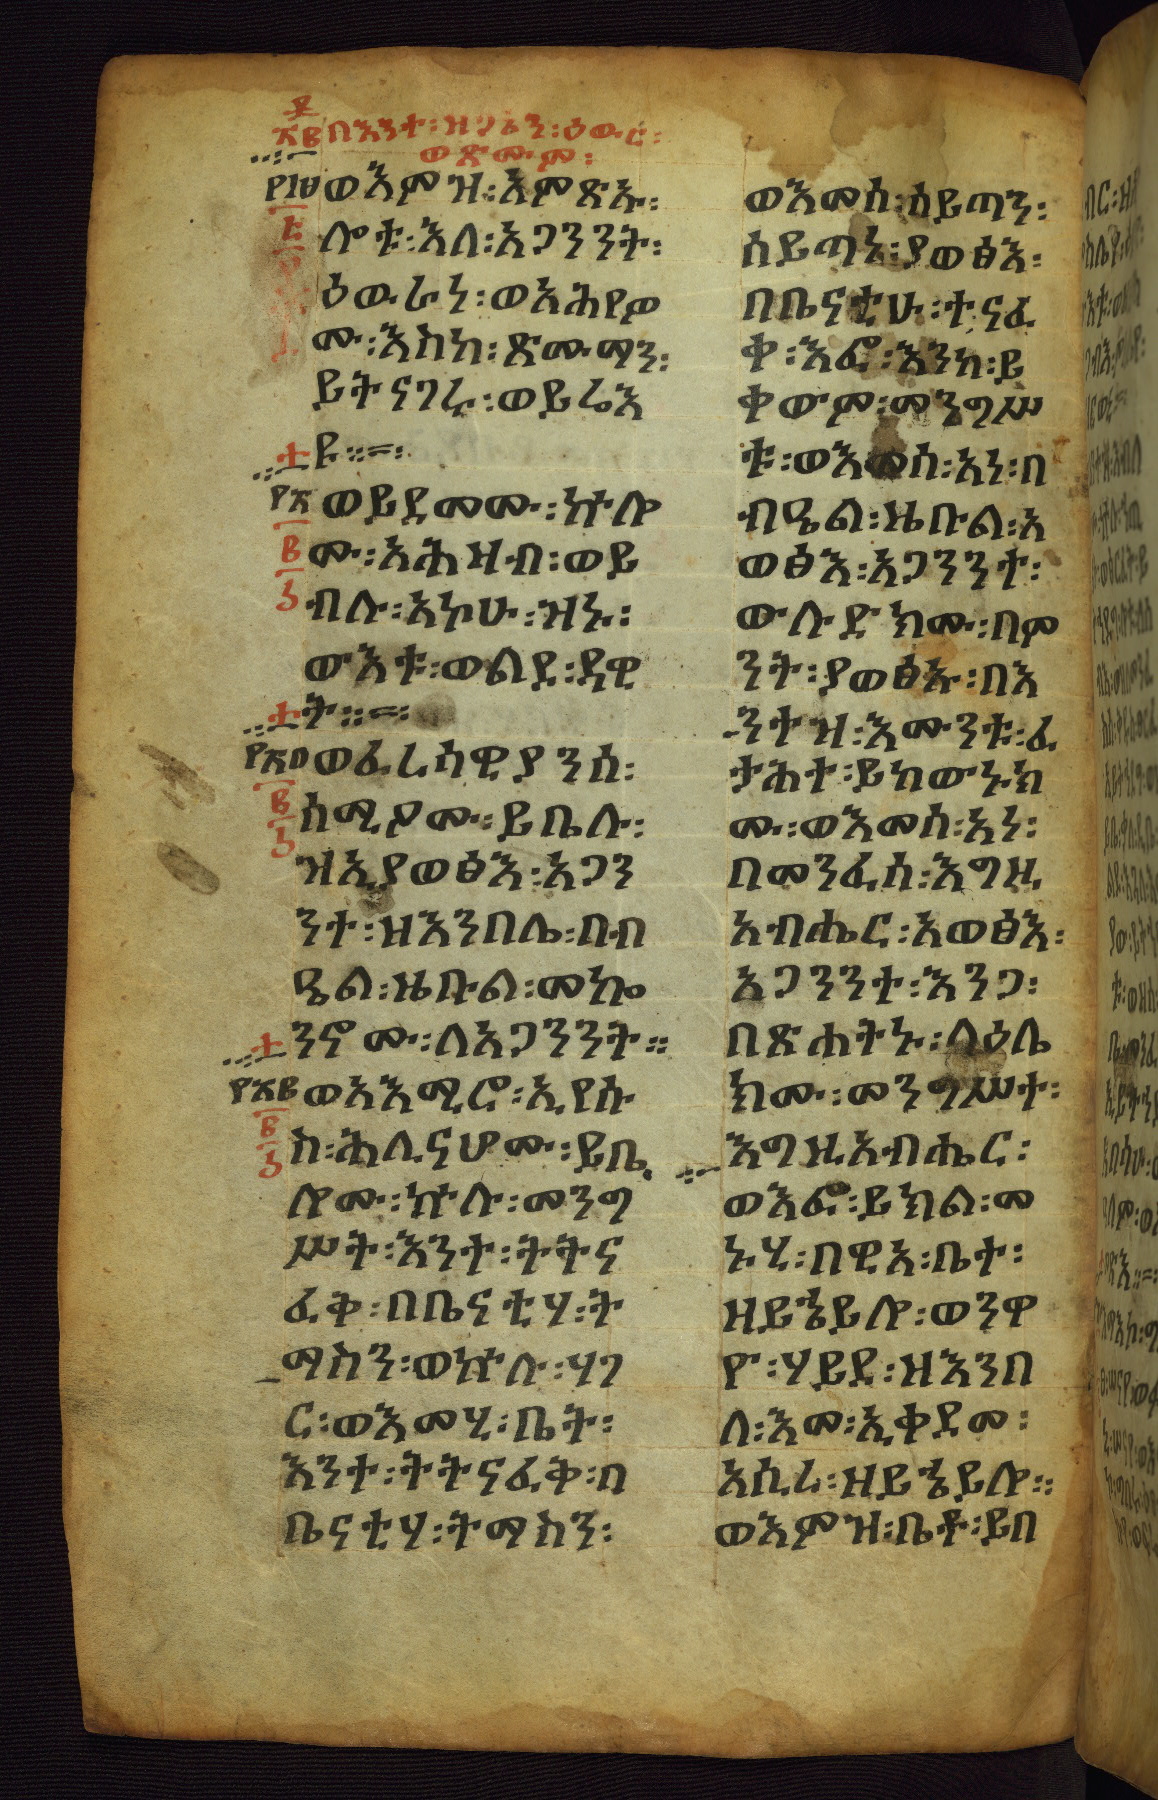 በእንተ፡ዝጋኔን፡ዕውር፡
ወጽሙም፡
፻፲፱ወእምዝ፡አምጽኡ፡
ሎቱ፡እለ፡አጋንንት፡
ዕውራነ፡ወአሕየዎ
ሙ፡እስከ፡ጽሙማን፡
ይትናገሩ፡ወይሬእ
ዩ።=፡
፻፳ወይደመሙ፡ኵሎ
ሙ፡አሕዛብ፡ወይ
ብሉ፡አኮሁ፡ዝኑ፡
ውእቱ፡ወልደ፡ዳዊ
ት።=፡
፻፳፩ወፈሪሳዊያንሰ፡
ሰሚዖሙ፡ይቤሉ፡
ዝኢያወፅእ፡አጋን
ንተ፡ዘእንበሌ፡በብ
ዔል፡ዜቡል፡መኰ
ንኖሙ፡ለአጋንንት።
፻፳፪ወአእሚሮ፡ኢየሱ
ስ፡ሕሊናሆሙ፡ይቤ
ሎሙ፡ኵሉ፡መንግ
ሥት፡እንተ፡ትትና
ፈቅ፡በቤናቲሃ፡ት
ማስን፡ወኵሉ፡ሃገ
ር፡ወእመሂ፡ቤት፡
እንተ፡ትትናፈቅ፡በ
ቤናቲሃ፡ትማስን፡
ወእመሰ፡ሰይጣን፡
ሰይጣነ፡ያወፅእ፡
በቤናቲሁ፡ተናፈ
ቀ፡እፎ፡እንከ፡ይ
ቀውም፡መንግሥ
ቱ፡ወእመሰ፡አነ፡በ
ብዔል፡ዜቡል፡አ
ወፅእ፡አጋንንተ፡
ውሉድክሙ፡በም
ንት፡ያወፅኡ፡በእ
ንተዝ፡እሙንቱ፡ፈ
ታሕተ፡ይከውኑክ
ሙ፡ወእመሰ፡አነ፡
በመንፈሰ፡እግዚ
አብሔር፡አወፅእ፡
አጋንንተ፡እንጋ፡
በጽሐትኑ፡ላዕሌ
ክሙ፡መንግሥተ፡
እግዚአብሔር፡
ወእፎ፡ይክል፡መ
ኑሂ፡በዊአ፡ቤተ፡
ዘይኄይሎ፡ወንዋ
ዮ፡ሃይደ፡ዘእንበ
ለ፡እመ፡ኢቀደመ፡
አሲረ፡ዘይኄይሎ፡፡
ወእምዝ፡ቤቶ፡ይበ